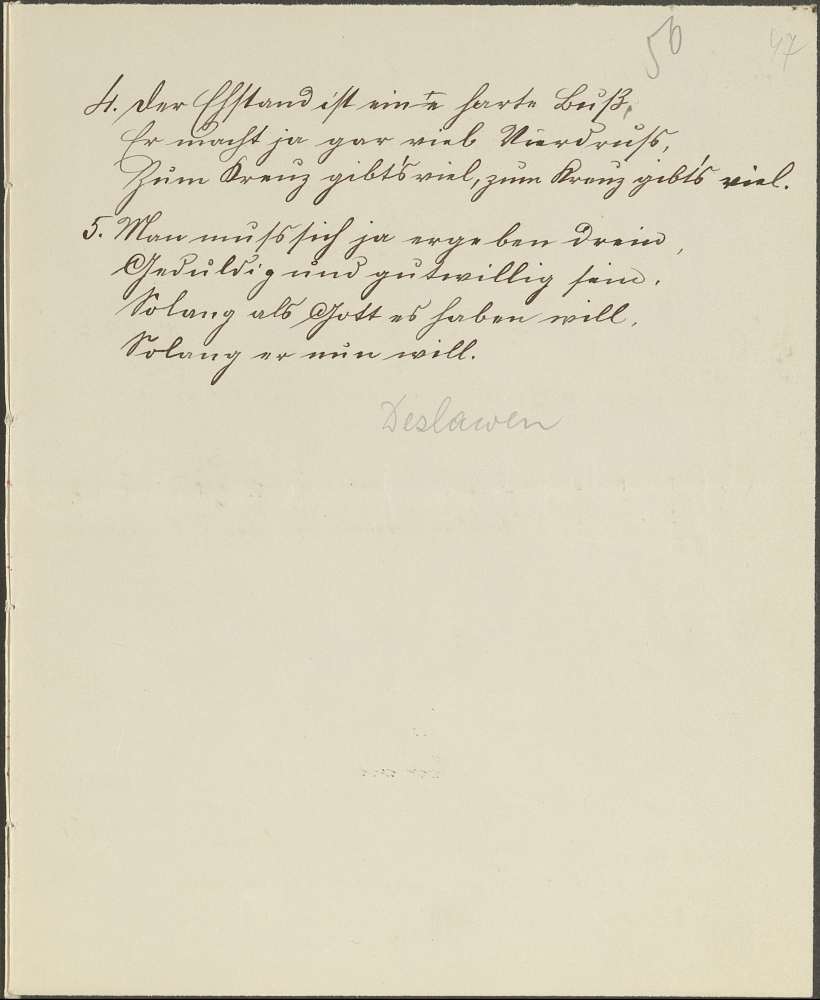 56 47
4. Der Ehstand ist eine harte Buß,
Er macht ja gar viel Vierdruss,
Zum Kreuz gibt's viel, zum Kreuz gibt's viel.
5. Man muss sich ja ergeben drein,
Geduldig und gutwillig sein.
Solang als Gott es haben will,
Solang er nun will.
Deslawen